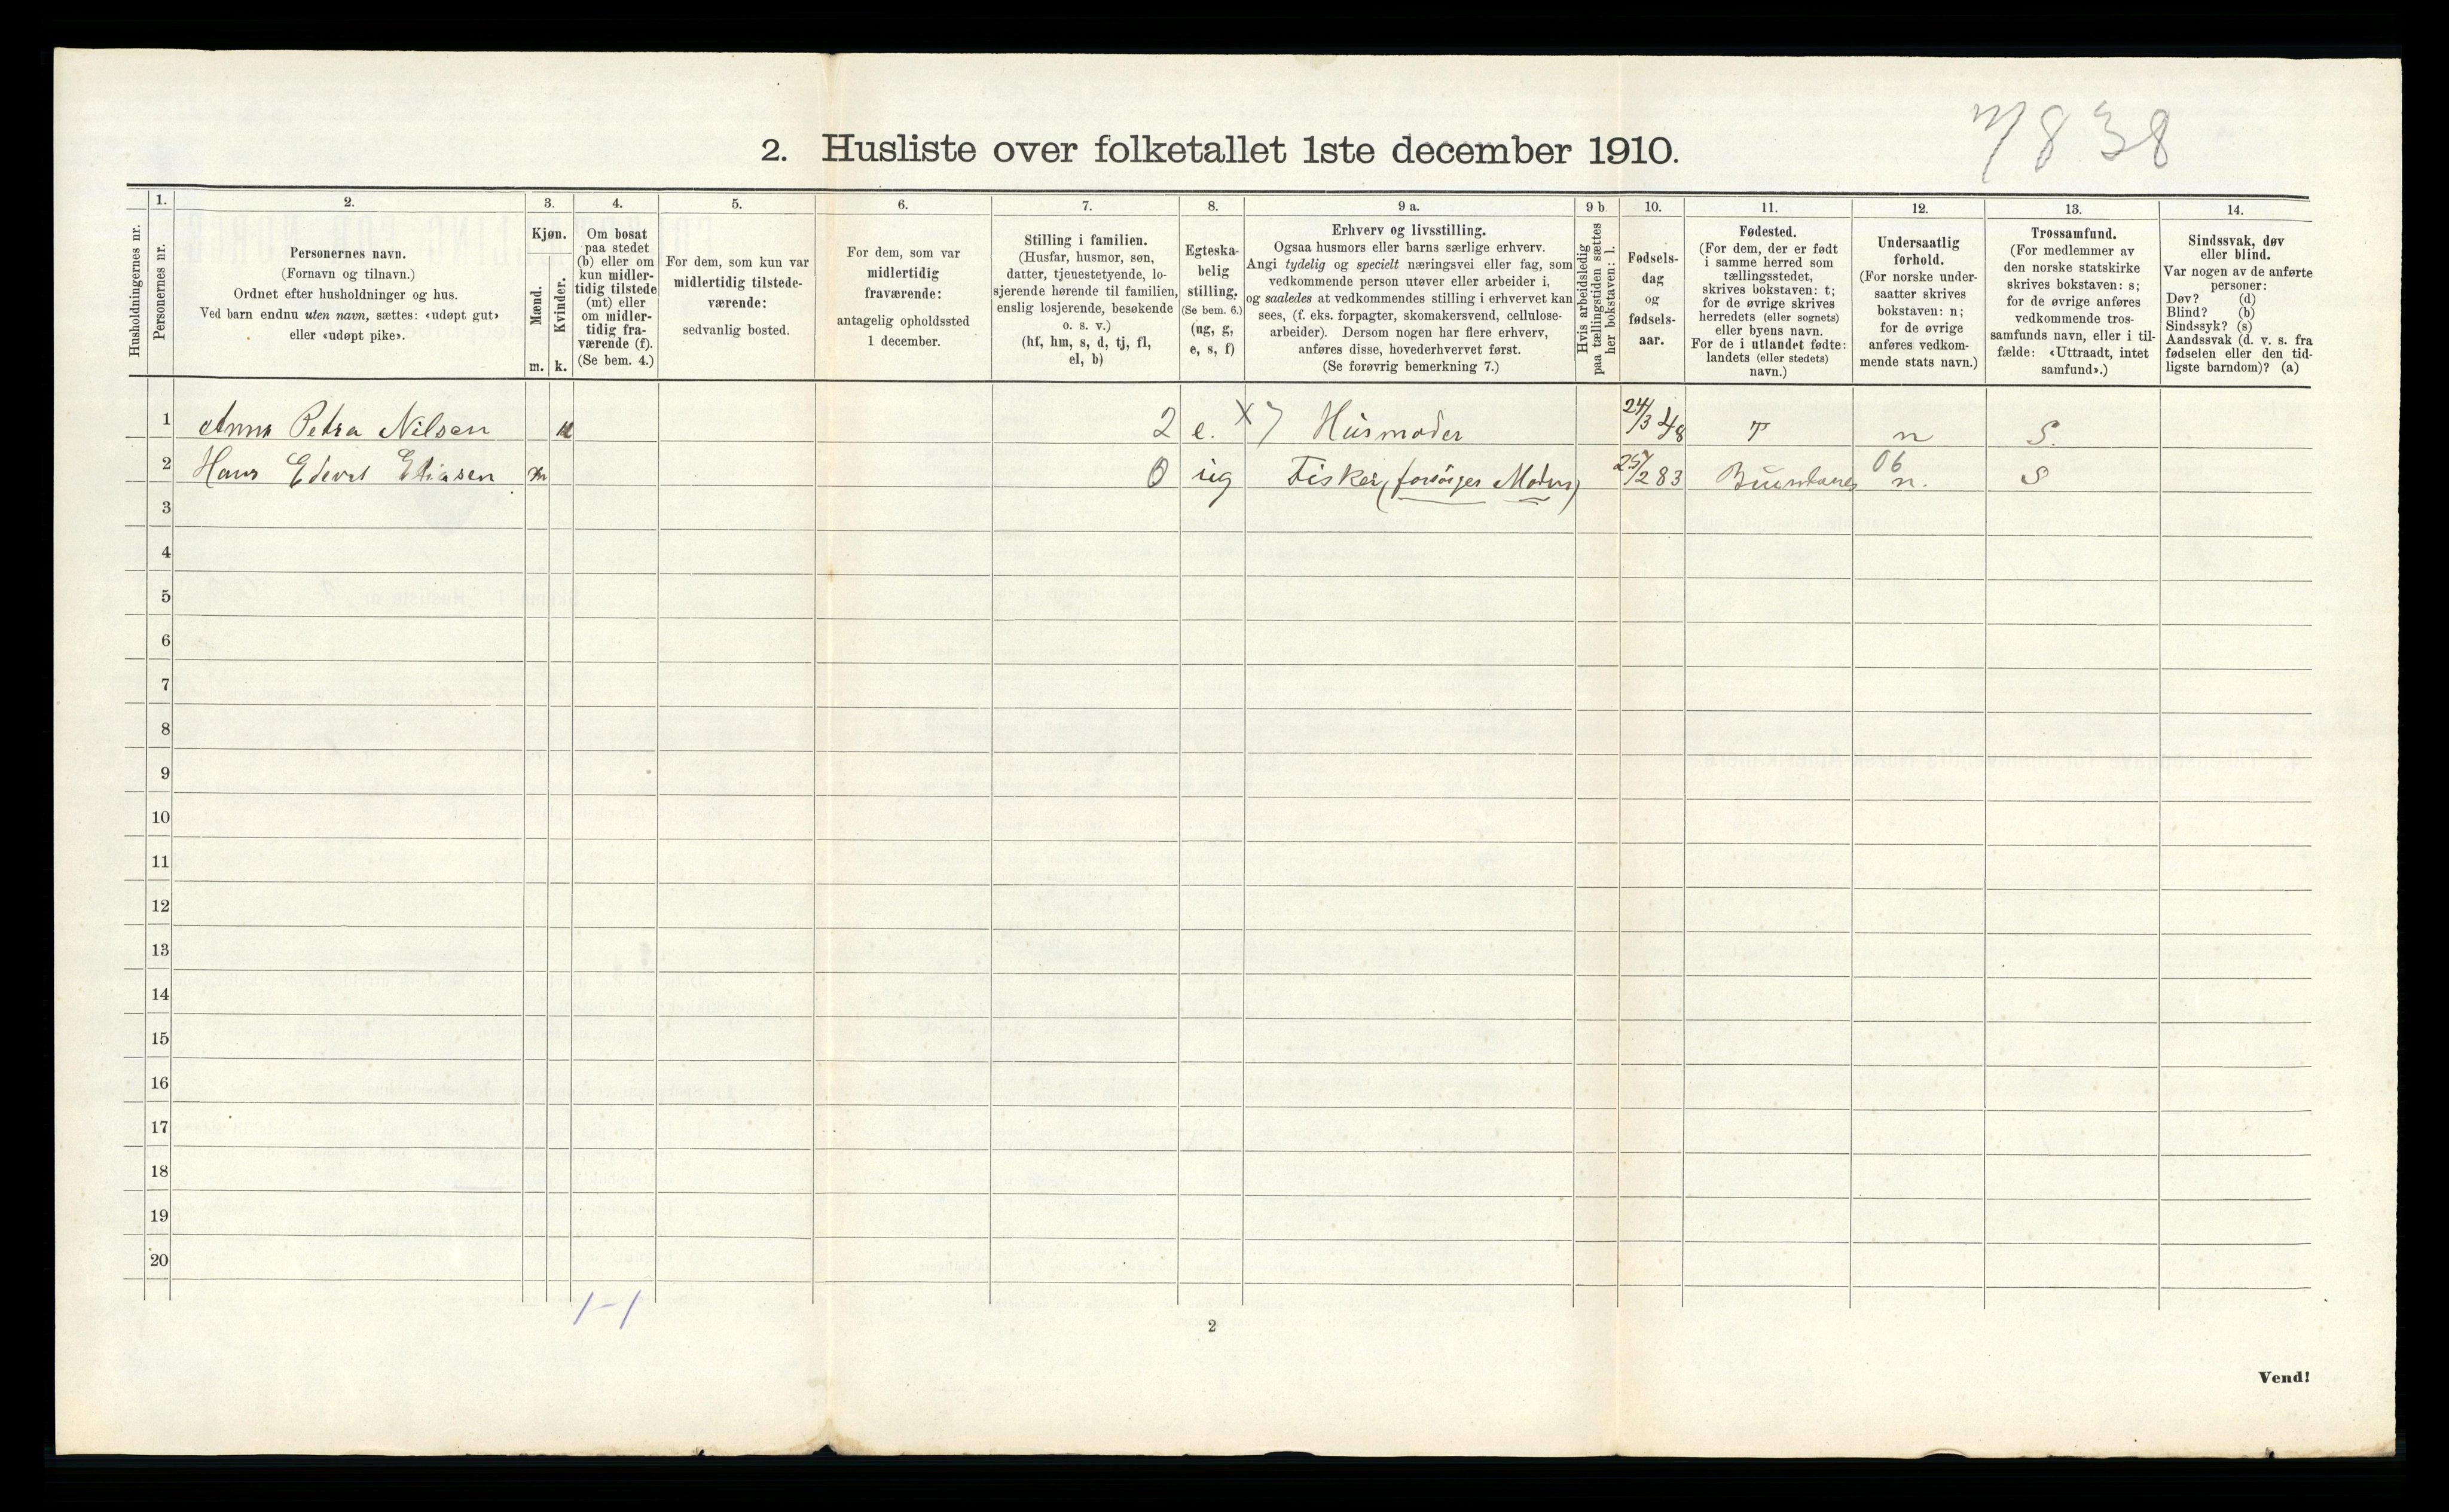 838
2. Husliste over folketallet 1ste december 1910.
Husholdningernes nr.
1.
Personernes nr.
2.
Personernes navn.
(Fornavn og tilnavn.)
Ordnet efter husholdninger og hus.
Ved barn endnu uten navn, sættes: «udøpt gut»
eller «udøpt pike».
3.
Kjøn.
Mænd.
Kvinder.
m. k.
4.
Om bosat
paa stedet
(b) eller om
kun midler-
tidig tilstede
(mt) eller
om midler-
tidig fra-
værende (f).
(Se bem. 4.)
5.
For dem, som kun var
midlertidig tilstede-
værende:
sedvanlig bosted.
6.
For dem, som var
midlertidig
fraværende:
antagelig opholdssted
1 december.
7.
Stilling i familien.
(Husfar, husmor, søn,
datter, tjenestetyende, lo-
sjerende hørende til familien,
enslig losjerende, besøkende
o. s. v.)
(hf, hm, s, d, tj, fl,
el, b)
8.
Egteska-
belig
stilling.
(Se bem. 6.)
(ug, g,
e, s, f)
9 a.
Erhverv og livsstilling.
Ogsaa husmors eller barns særlige erhverv.
Angi tydelig og specielt næringsvei eller fag, som
vedkommende person utøver eller arbeider i,
og saaledes at vedkommendes stilling i erhvervet kan
sees, (f. eks. forpagter, skomakersvend, cellulose-
arbeider). Dersom nogen har flere erhverv,
anføres disse, hovederhvervet først.
(Se forøvrig bemerkning 7.)
9 b
Hvis arbeidsledig
paa tællingstiden sættes
her bokstaven: l.
10.
Fødsels-
dag
og
fødsels-
aar.
11.
Fødested.
(For dem, der er født
i samme herred som
tællingsstedet,
skrives bokstaven: t;
for de øvrige skrives
herredets (eller sognets)
eller byens navn.
For de i utlandet fødte:
landets (eller stedets)
navn.)
12.
Undersaatlig
forhold.
(For norske under-
saatter skrives
bokstaven: n;
for de øvrige
anføres vedkom-
mende stats navn.)
13.
Trossamfund.
(For medlemmer av
den norske statskirke
skrives bokstaven: s;
for de øvrige anføres
vedkommende tros-
samfunds navn, eller i til-
fælde: «Uttraadt, intet
samfund».)
14.
Sindssvak, døv
eller blind.
Var nogen av de anførte
personer:
Døv? (d)
Blind? (b)
Sindssyk? (s)
Aandssvak (d. v. s. fra
fødselen eller den tid-
ligste barndom)? (a)
1 Anna Petra Nilsen k 2 e. X 7 Husmoder 24/3 48 T n S.
2 Hans Edevart Eliasen m 0 ug Fisker (forsörger Moder) 25/2 83 06 n. S
3
4
5
6
7
8
9
10
11
12
13
14
15
16
17
18
19
20
1-1
2
Vend!